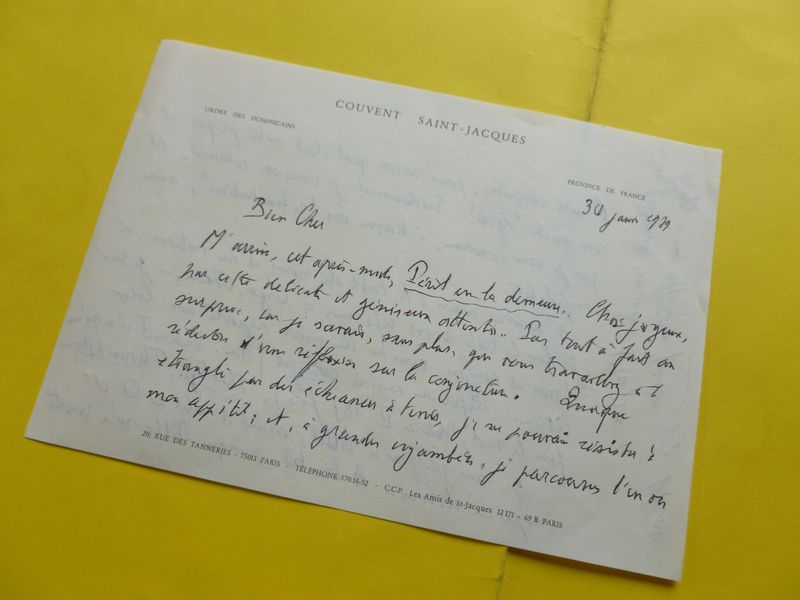 COUVENT SAINT-JACQUES
ORDRE DES DOMINICAINS
PROVINCE DE FRANCE
30 janv 1979
Bien Cher
M'arrive, cet après-midi, Péril en la demeure.. Choc joyeux,
par cette délicate et généreuse attention.. Pas tout à fait en
surprise, car je savais, sans plus, que vous travailliez à
rédaction d'une réflexion sur la conjoncture. Quoique
étranglé par des échéances à tenir, je ne pouvais résister à
mon appétit; et, à grandes enjambées, je parcours l'un ou
20, RUE DES TANNERIES - 75013 PARIS - TÉLÉPHONE 570.14-52 - C.C.P. Les Amis de St-Jacques 12 171 - 69 R PARIS